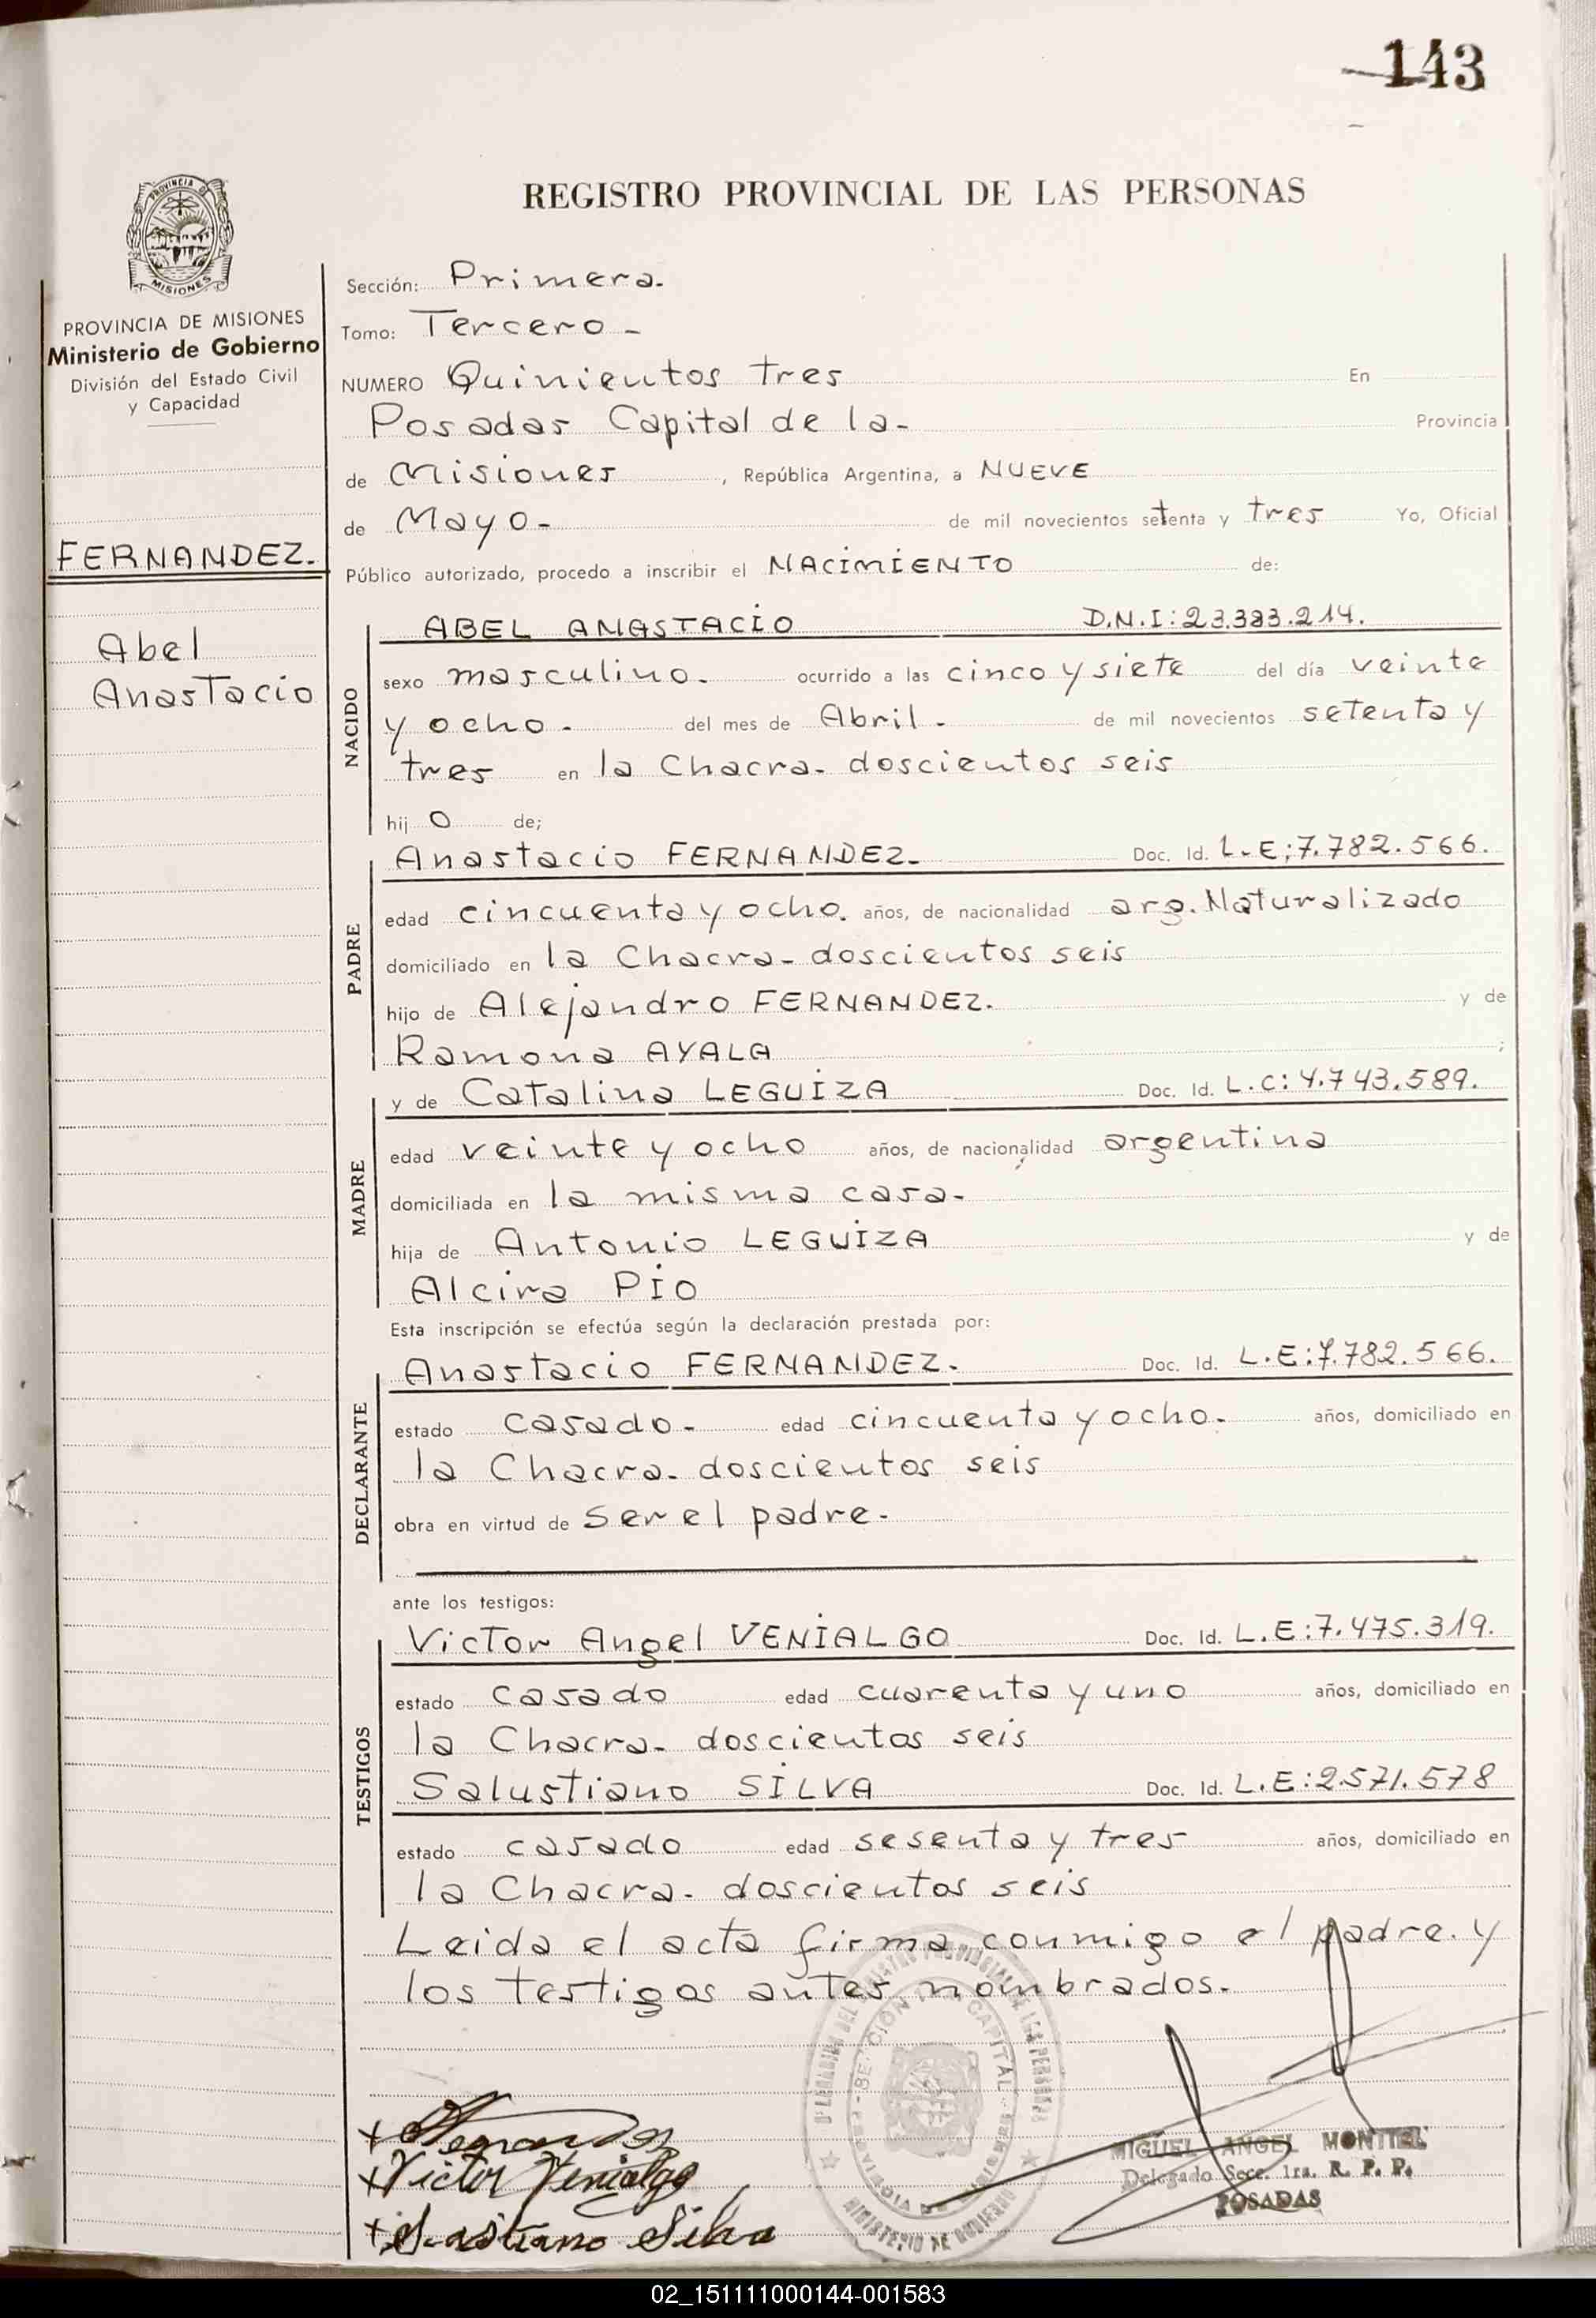 143
REGISTRO PROVINCIAL DE LAS PERSONAS
PROVINCIA DE MISIONES
PROVINCIA DE MISIONES
Ministerio de Gobierno
División del Estado Civil
y Capacidad
FERNANDEZ.
Abel
Anastacio
Sección: Primera.
Tomo: Tercero -
NUMERO Quinientos tres En
Posadas Capital de la - Provincia
de Misiones, República Argentina, a NUEVE
de Mayo - de mil novecientos setenta y tres Yo, Oficial
Público autorizado, procedo a inscribir el NACIMIENTO de:
NACIDO
ABEL ANASTACIO D.N.I: 23.383.214.
sexo masculino. ocurrido a las cinco y siete del día veinte
y ocho. del mes de Abril. de mil novecientos setenta y
tres en la Chacra. doscientos seis
hij o de;
PADRE
Anastacio FERNANDEZ. Doc. Id. L.E; 7.782.566.
edad cincuenta y ocho. años, de nacionalidad arg. Naturalizado
domiciliado en la Chacra. doscientos seis
hijo de Alejandro FERNANDEZ. y de
Ramona AYALA ;
MADRE
y de Catalina LEGUIZA Doc. Id. L.C: 4.743.589.
edad veinte y ocho años, de nacionalidad argentina
domiciliada en la misma casa.
hija de Antonio LEGUIZA y de
Alcira PIO
Esta inscripción se efectúa según la declaración prestada por:
DECLARANTE
Anastacio FERNANDEZ. Doc. Id. L.E: 7.782.566.
estado casado. edad cincuenta y ocho. años, domiciliado en
la Chacra. doscientos seis
obra en virtud de ser el padre.
ante los testigos:
TESTIGOS
Victor Angel VENIALGO Doc. Id. L.E: 7.475.319.
estado casado edad cuarenta y uno años, domiciliado en
la Chacra. doscientos seis
Salustiano SILVA Doc. Id. L.E: 2.571.578
estado casado edad sesenta y tres años, domiciliado en
la Chacra. doscientos seis
Leida el acta firma conmigo el padre. y
los testigos antes nombrados.
Victor Venialgo
Silva
MIGUEL ANGEL MONTIEL
Delegado Secc. 1ra. R. P. P.
POSADAS
MINISTERIO DE GOBIERNO
02_151111000144-001583